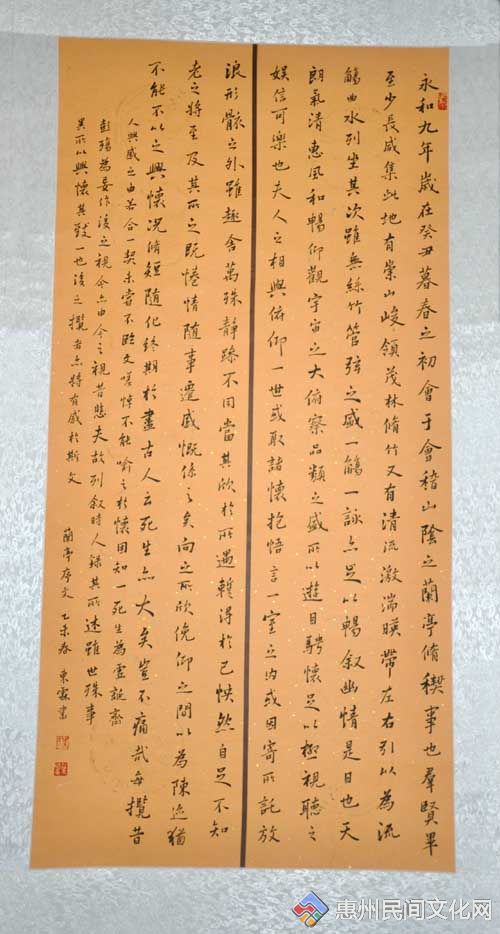 永和九年歲在癸丑暮春之初會于會稽山陰之蘭亭脩稧事也羣賢畢
至少長咸集此地有崇山峻領茂林脩竹又有清流激湍暎帶左右引以為流
觴曲水列坐其次雖無絲竹管弦之盛一觴一詠亦足以暢叙幽情是日也天
朗氣清惠風和暢仰觀宇宙之大俯察品類之盛所以遊目騁懷足以極視聽之
娛信可樂也夫人之相與俯仰一世或取諸懷抱悟言一室之內或因寄所託放
浪形骸之外雖趣舍萬殊靜躁不同當其欣於所遇蹔得於己怏然自足不知
老之將至及其所之既惓情隨事遷感慨係之矣向之所欣俛仰之間以為陳迹猶
不能不以之興懷況脩短隨化終期於盡古人云死生亦大矣豈不痛哉每攬昔
人興感之由若合一契未嘗不臨文嗟悼不能喻之於懷固知一死生為虛誕齊
彭殤為妄作後之視今亦由今之視昔悲夫故列叙時人錄其所述雖世殊事
異所以興懷其致一也後之攬者亦將有感於斯文
蘭亭序文 乙未春 東 書
惠州民间文化网